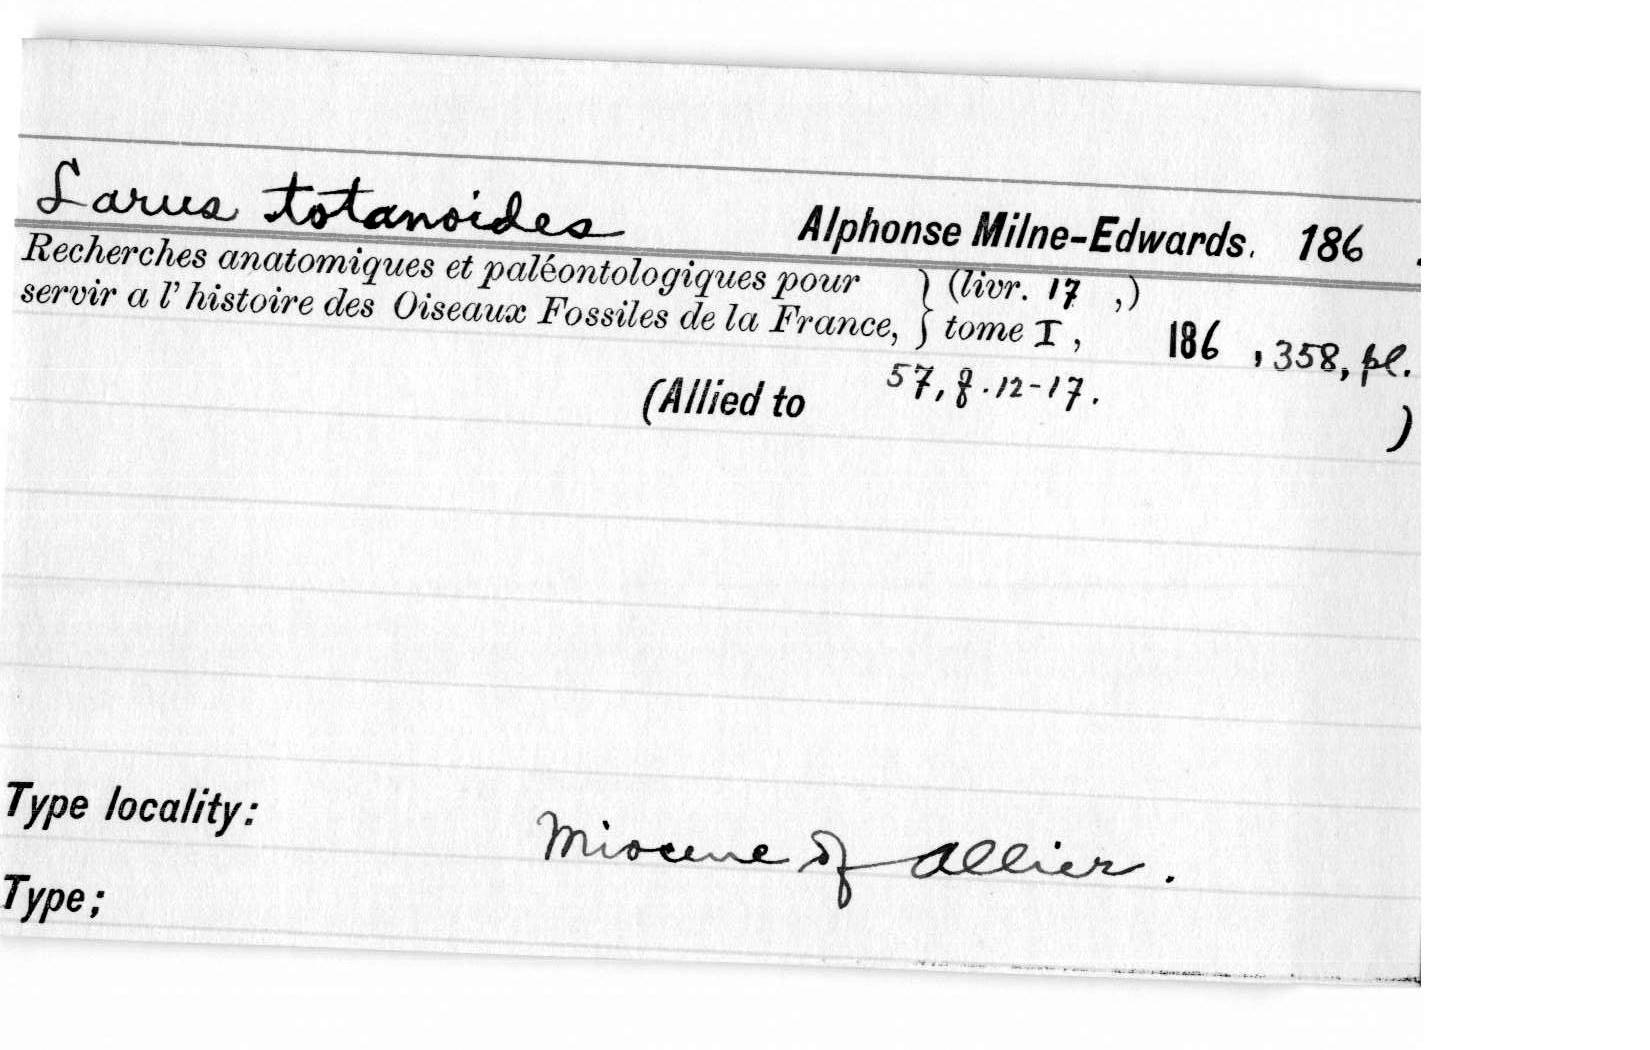 Larus totanoides Alphonse Milne-Edwards. 186 .
Recherches anatomiques et paléontologiques pour } (livr. 17 ,)
servir a l' histoire des Oiseaux Fossiles de la France, } tome I , 186 , 358, pl.
57, f. 12-17.
(Allied to )
Type locality: Miocene of Allier.
Type;